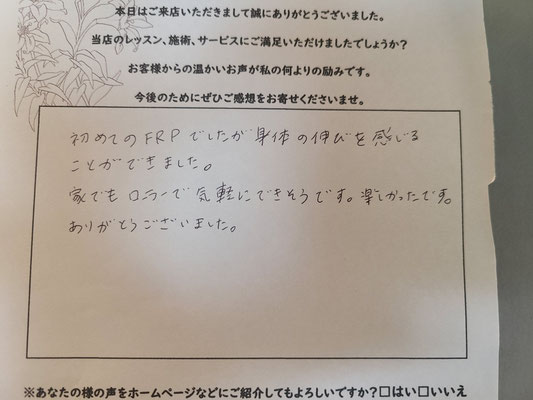 本日はご来店いただきまして誠にありがとうございました。
当店のレッスン、施術、サービスにご満足いただけましたでしょうか?
お客様からの温かいお声が私の何よりの励みです。
今後のためにぜひご感想をお寄せくださいませ。
初めてのFRPでしたが身体の伸びを感じる
ことができました。
家でもローラーで気軽にできそうです。楽しかったです。
ありがとうございました。
※あなたの様の声をホームページなどにご紹介してもよろしいですか?□はい□いいえ